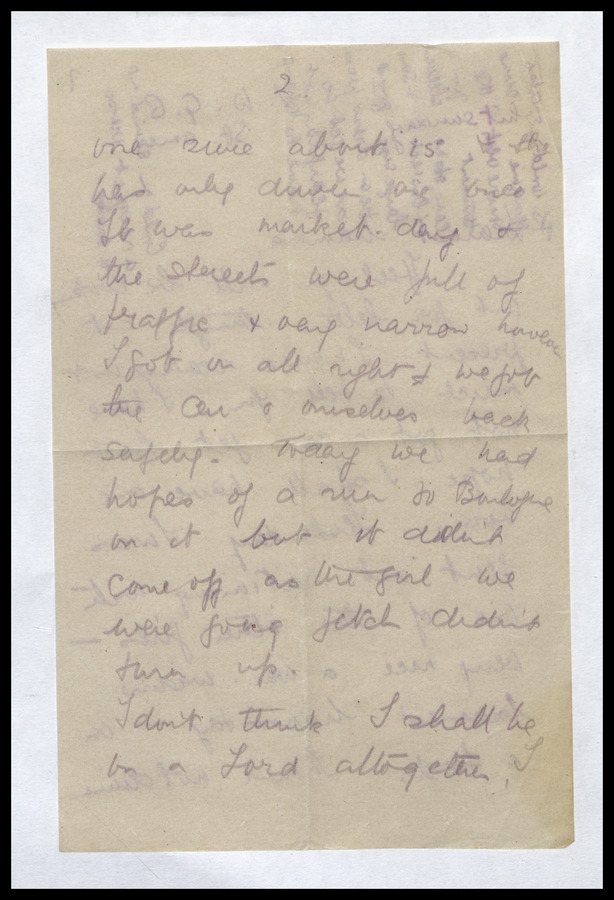 2.
one since about is &
has only driven one once
It was market-day &
the streets were full of
traffic & very narrow however
I got on all right & we got
the car & ourselves back
safely. Today we had
hopes of a run to Boulogne
on it but it didn't
come off as the girl we
were going fetch didn't
turn up.
I don't think I shall be
on a Ford altogether, I